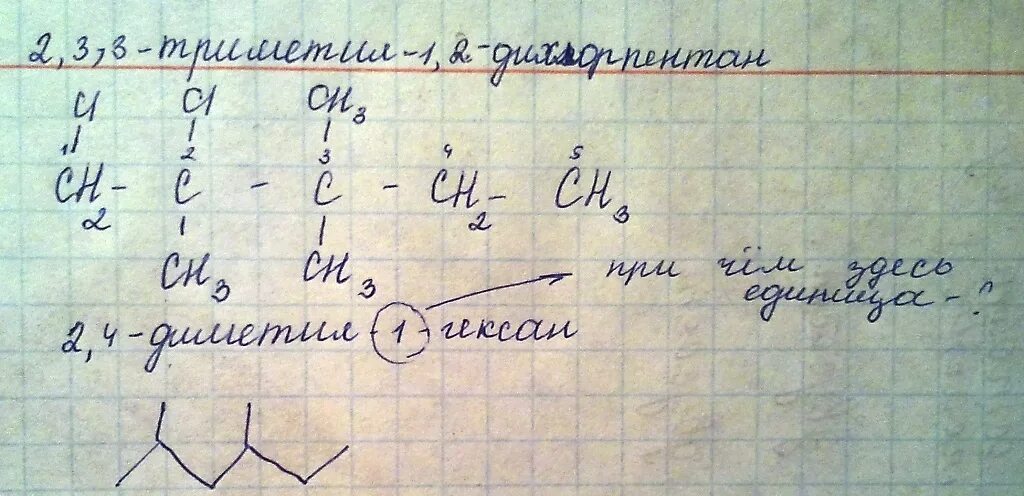 2,3,3-триметил-1,2-дихлорпентан
Cl Cl CH3
1 2 3 4 5
CH2 - C - C - CH2 - CH3
CH3 CH3
при чём здесь
единица - ?
2,4-диметил-1-гексан